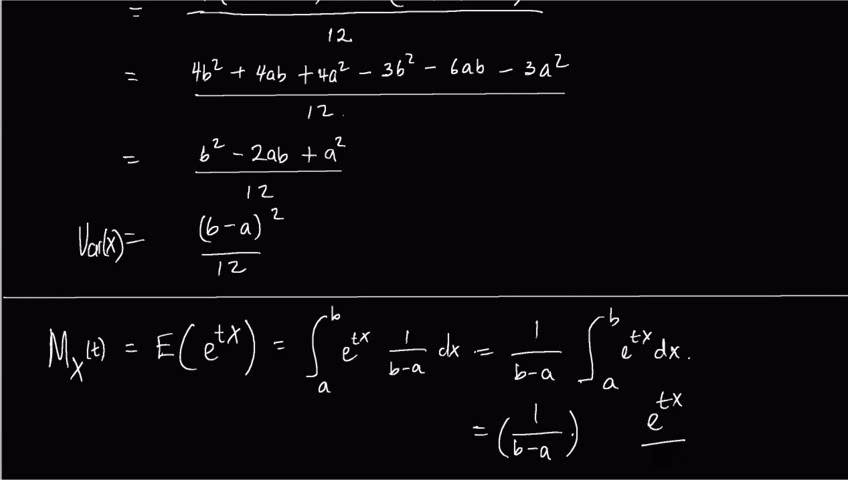 = ――― 12
= 4b² + 4ab + 4a² − 3b² − 6ab − 3a² / 12.
= b² − 2ab + a² / 12
Var(x) = (b−a)² / 12
M_X(t) = E(e^{tx}) = ∫_a^b e^{tx} 1/(b−a) dx = 1/(b−a) ∫_a^b e^{tx} dx.
= (1/(b−a)). e^{tx}